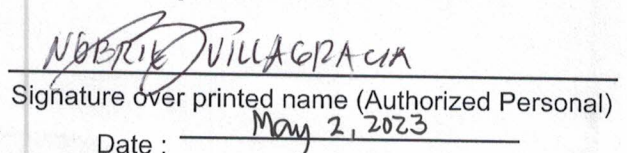 VILLAGRACIA
Signature over printed name (Authorized Personal)
May 2, 2023
Date :